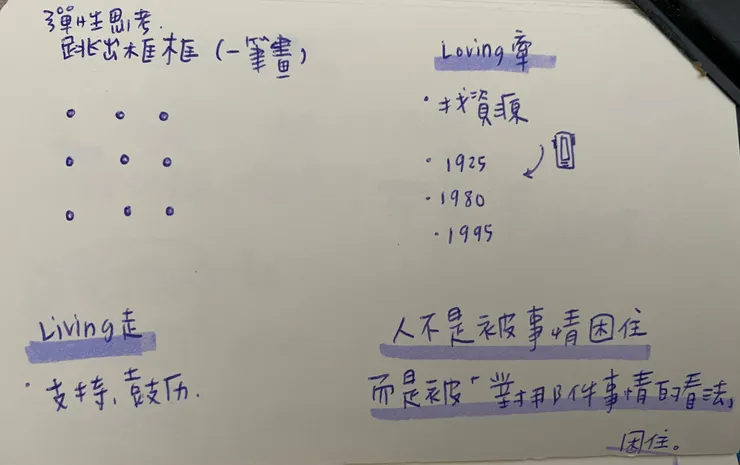 彈性思考.
跳出框框(一筆畫)
Loving牽
·找資源
·1925
·1980
·1995
Living走
·支持、鼓历.
人不是被事情困住
而是被「對那件事情的看法」
困住。